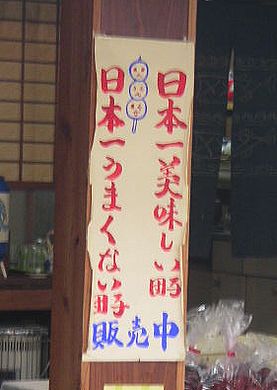 日本一美味しい団子
日本一うまくない団子
販売中